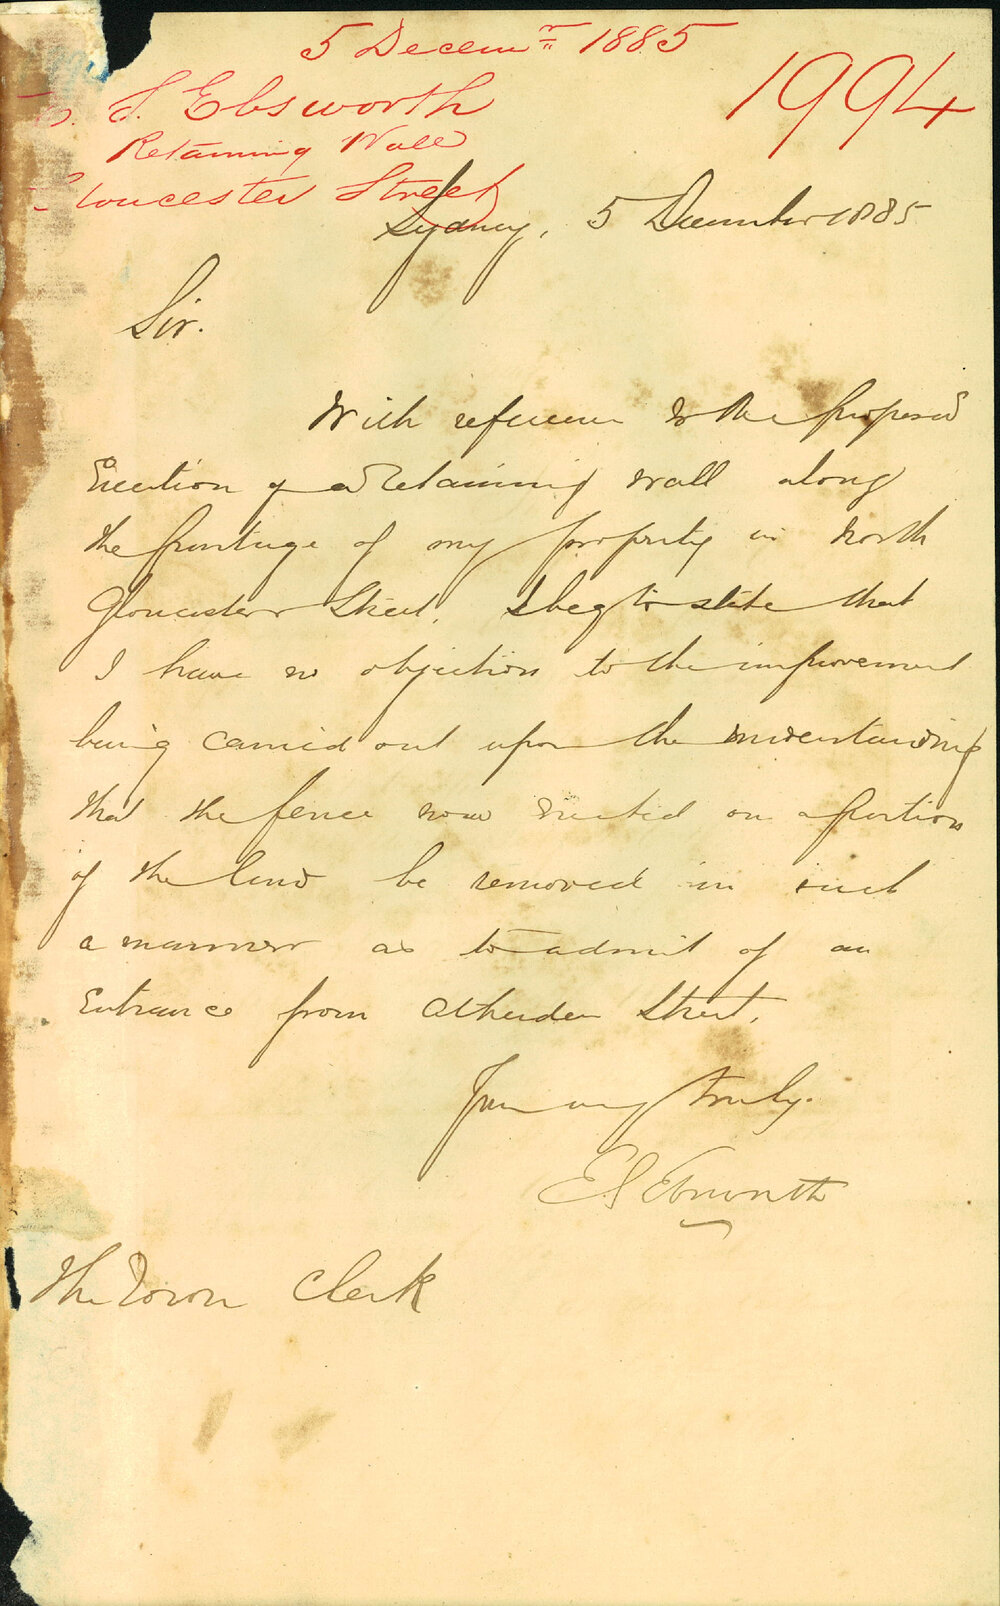 5 Decemr 1885
1994
S. Ebsworth
Retaining Wall
Gloucester Street
Sydney, 5 December 1885
Sir.
With reference to the proposed
Erection of a Retaining wall along
the frontage of my property in North
Gloucester Street, I beg to state that
I have no objection to the improvement
being carried out upon the understanding
that the fence now erected on a portion
of the land be removed in such
a manner as to admit of an
Entrance from Atherden Street.
Yours very truly.
E S Ebsworth
The Town Clerk